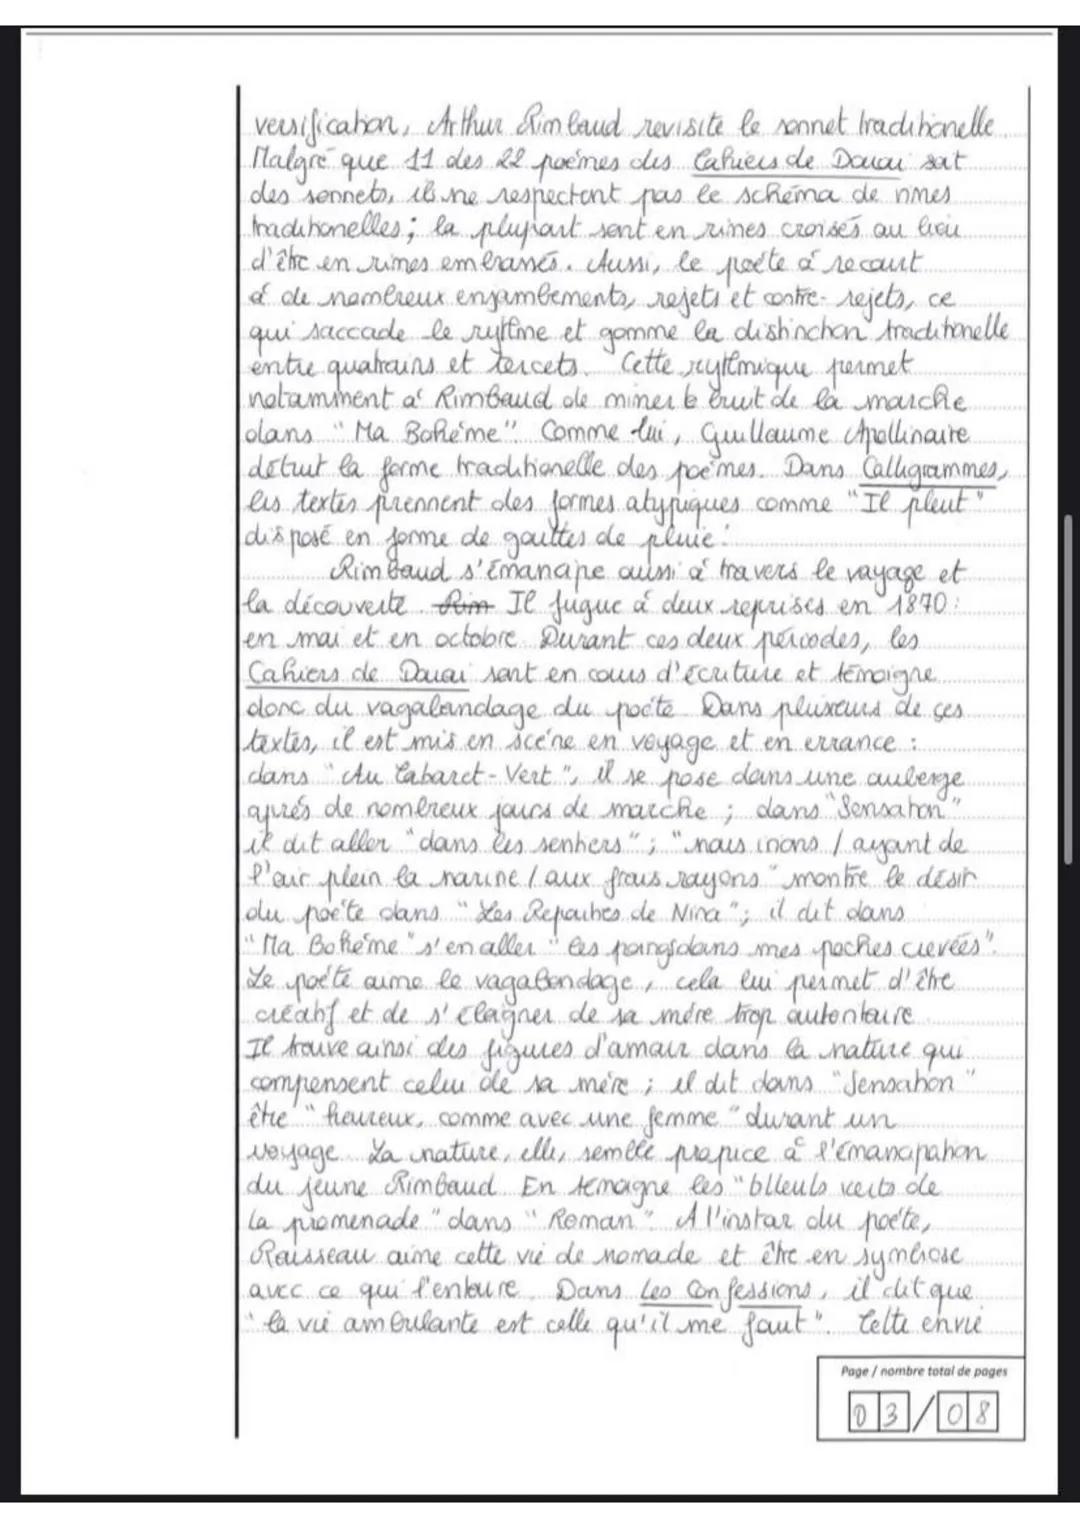 versification, Arthur Rimbaud revisite le sonnet traditionelle.
Malgré que 11 des 22 poèmes des Cahiers de Douai sont
des sonnets, ils ne respectent pas le schéma de rimes
traditionelles ; la plupart sont en rimes croisés au lieu
d'être en rimes embrassés. Aussi, le poète à recourt
à de nombreux enjambements, rejets et contre-rejets, ce
qui saccade le rythme et gomme la distinction traditionelle
entre quatrains et tercets. Cette rythmique permet
notamment à Rimbaud de mimer le bruit de la marche
dans "Ma Bohème". Comme lui, Guillaume Apollinaire
détruit la forme traditionelle des poèmes. Dans Calligrammes,
les textes prennent des formes atypiques comme "Il pleut"
disposé en forme de gouttes de pluie.
Rimbaud s'émancipe aussi à travers le voyage et
la découverte. Rim Il fugue à deux reprises en 1870 :
en mai et en octobre. Durant ces deux périodes, les
Cahiers de Douai sont en cours d'écriture et témoigne
donc du vagabondage du poète. Dans plusieurs de ces
textes, il est mis en scène en voyage et en errance :
dans "Au Cabaret-Vert", il se pose dans une auberge
après de nombreux jours de marche ; dans "Sensation"
il dit aller "dans les sentiers" ; "nous irions / ayant de
l'air plein la narine / aux frais rayons" montre le désir
du poète dans "Les Reparties de Nina" ; il dit dans
"Ma Bohème" s'en aller "les poings dans mes poches crevées".
Le poète aime le vagabondage, cela lui permet d'être
créatif et de s'élagner de sa mère trop autoritaire.
Il trouve ainsi des figures d'amour dans la nature qui
compensent celui de sa mère ; il dit dans "Sensation"
être "heureux, comme avec une femme" durant un
voyage. La nature, elle, semble propice à l'émancipation
du jeune Rimbaud. En témoigne les "tilleuls verts de
la promenade" dans "Roman". A l'instar du poète,
Rousseau aime cette vie de nomade et être en symbiose
avec ce qui l'entoure. Dans Les Confessions, il dit que
"la vie ambulante est celle qu'il me faut". Cette envie
Page / nombre total de pages
03/08